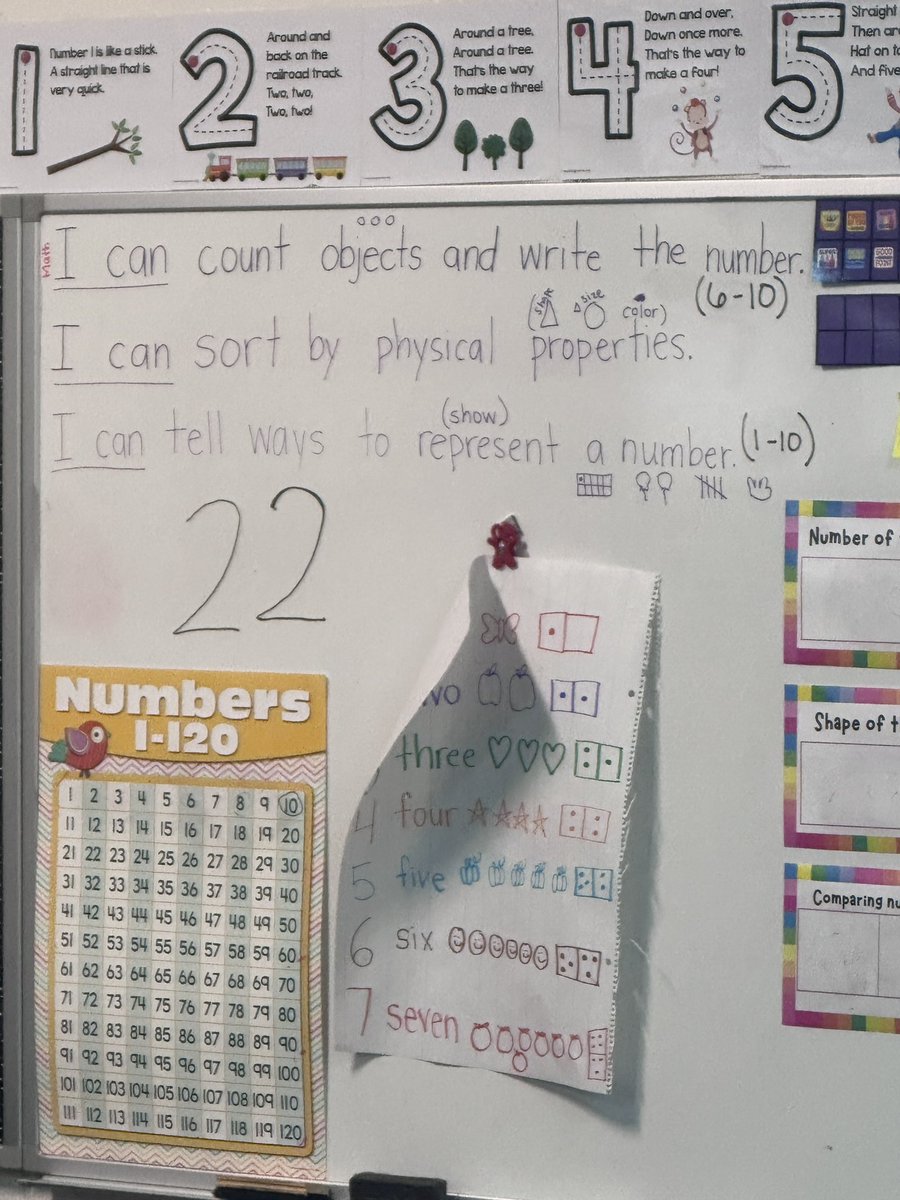 1
Number 1 is like a stick.
A straight line that is
very quick.
2
Around and
back on the
railroad track.
Two, two,
Two, two!
3
Around a tree.
Around a tree.
That's the way
to make a three!
4
Down and over,
Down once more.
That's the way to
make a four!
5
Straight
Then
Hat on
And five
Math
I can count objects and write the number.
(6-10)
(shape size color)
I can sort by physical properties.
(show)
I can tell ways to represent a number. (1-10)
22
Number of
Shape of
Comparing
three
4 four
5 five
6 six
7 seven
Numbers
1-120
1 2 3 4 5 6 7 8 9 10
11 12 13 14 15 16 17 18 19 20
21 22 23 24 25 26 27 28 29 30
31 32 33 34 35 36 37 38 39 40
41 42 43 44 45 46 47 48 49 50
51 52 53 54 55 56 57 58 59 60
61 62 63 64 65 66 67 68 69 70
71 72 73 74 75 76 77 78 79 80
81 82 83 84 85 86 87 88 89 90
91 92 93 94 95 96 97 98 99 100
101 102 103 104 105 106 107 108 109 110
111 112 113 114 115 116 117 118 119 120